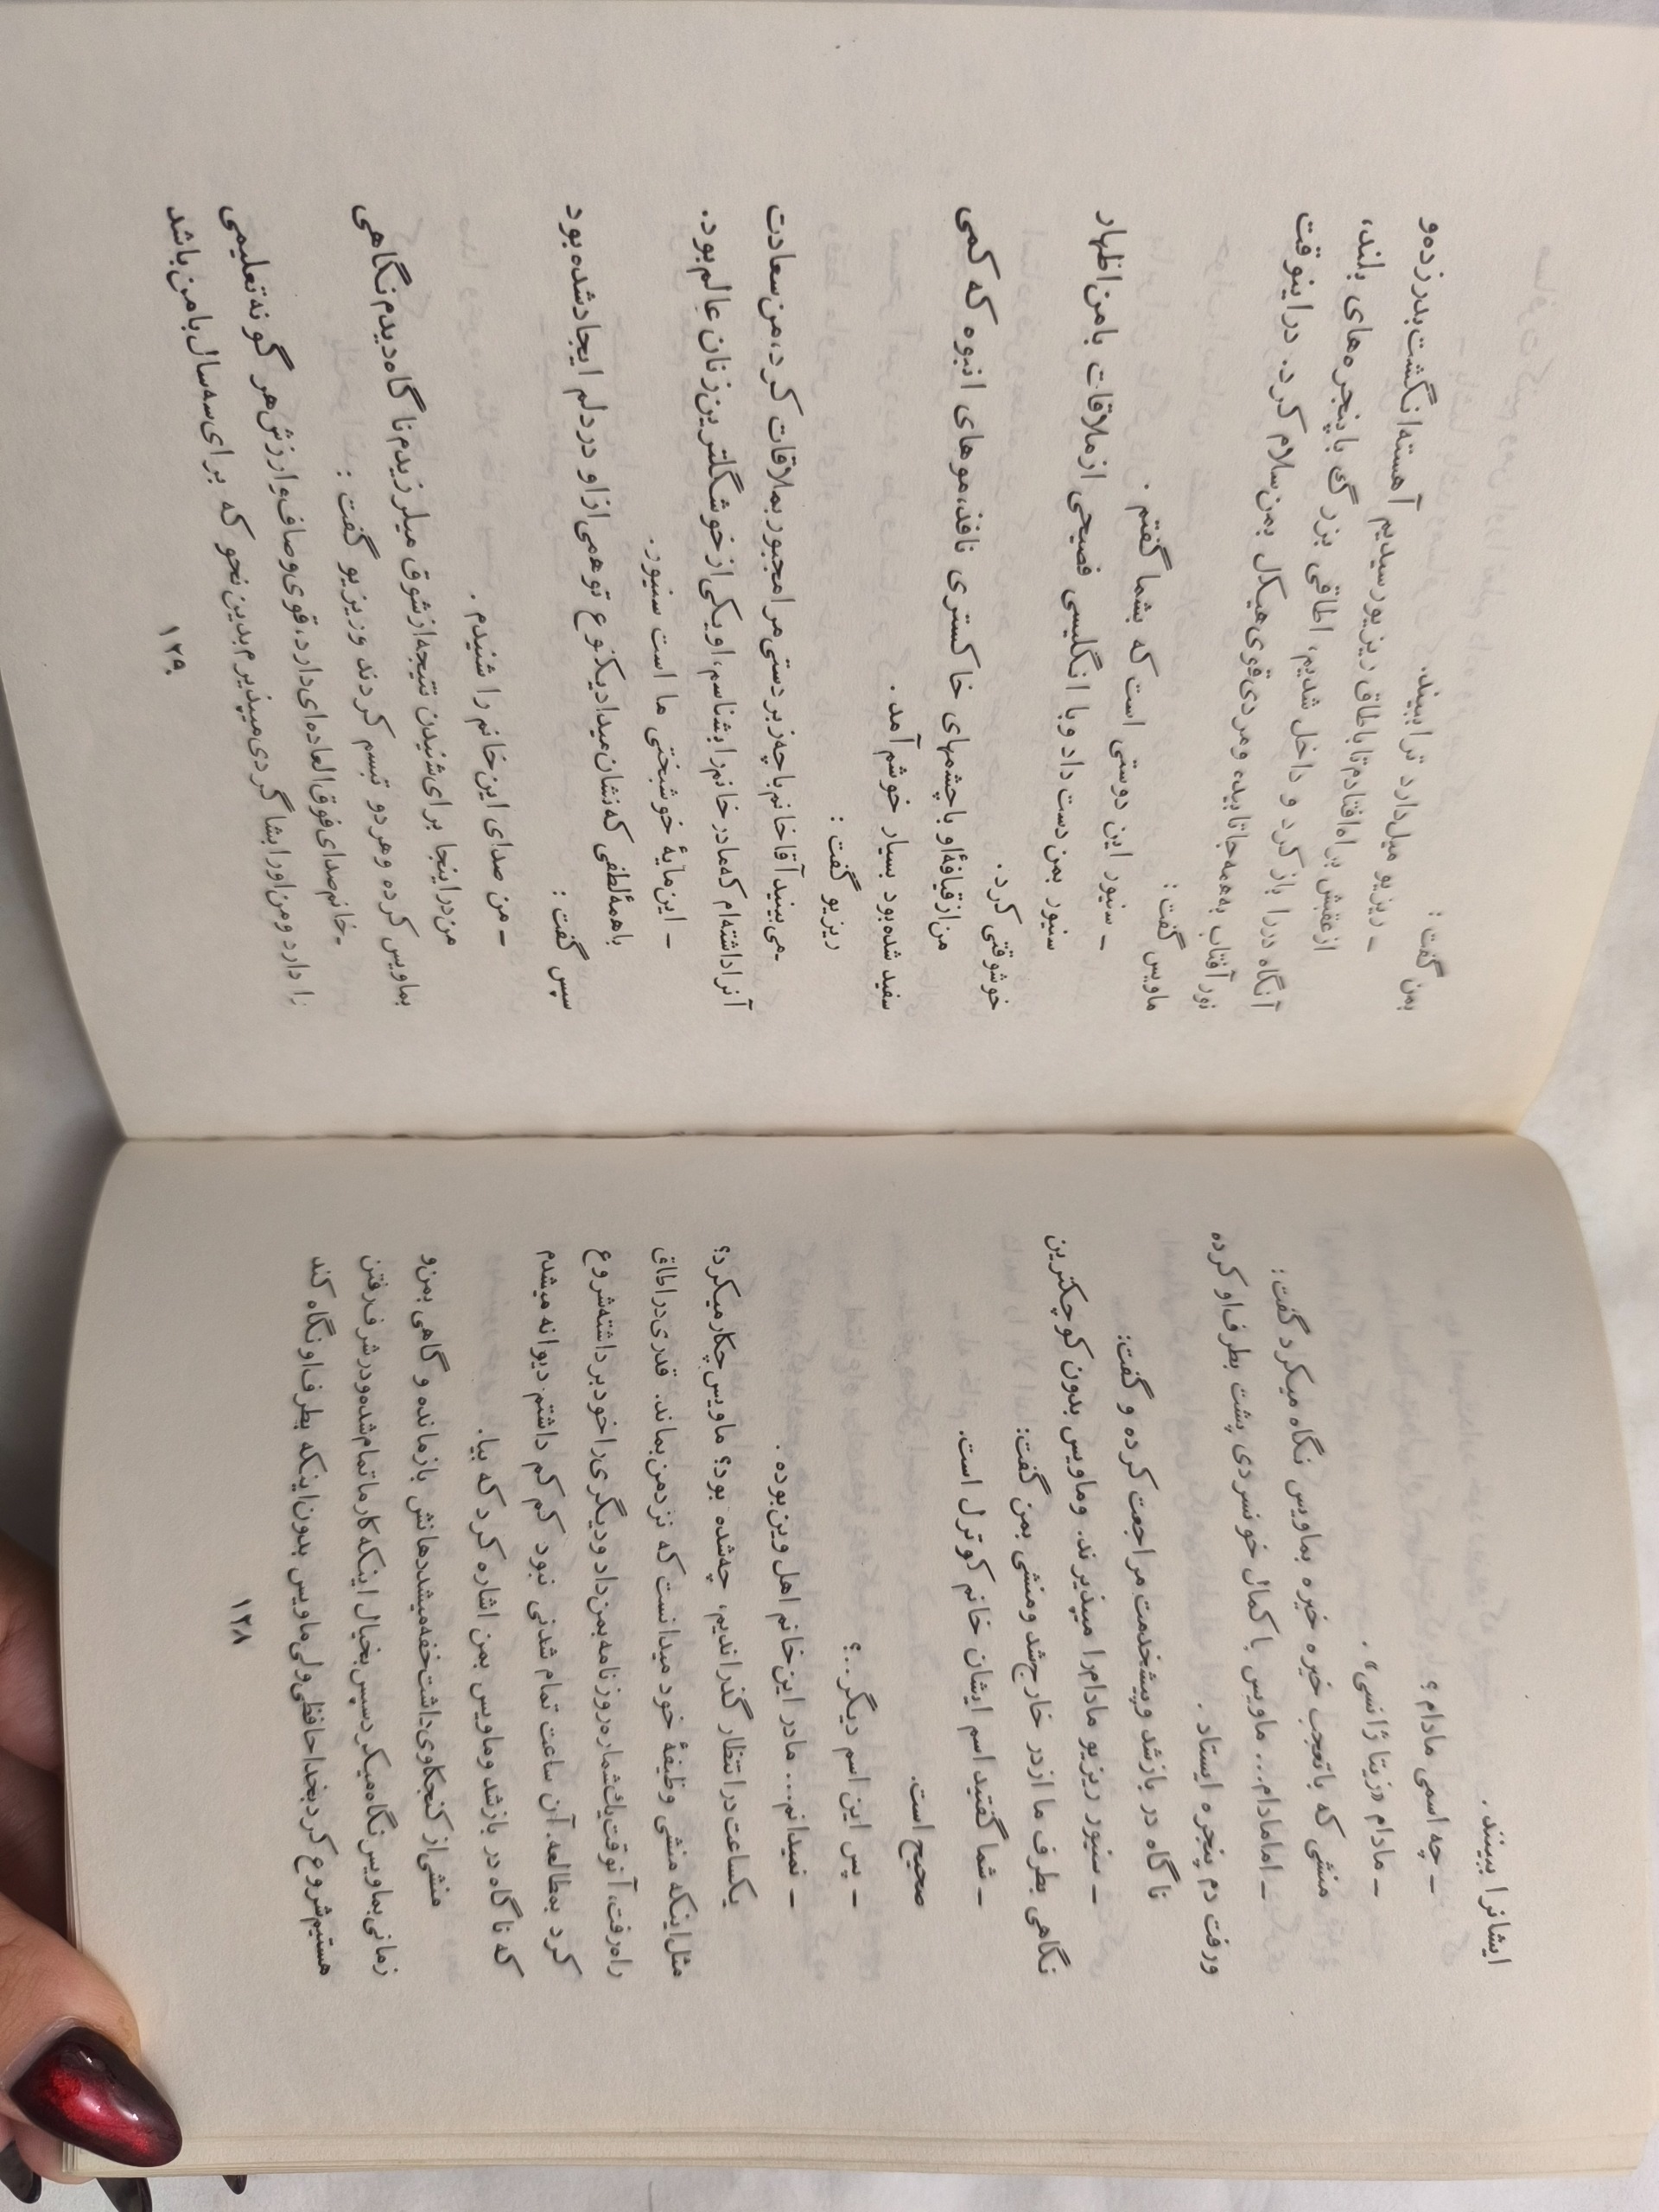 ایشانرا ببینند .
ـ چه اسمی مادام ؟
ـ مادام «زیتا ژانسی» .
منشی که باتعجب خیره خیره بماویس نگاه میکرد گفت:
ـ امامادام... ماویس باکمال خونسردی پشت بطرف‌او کرده
ورفت دم پنجره ایستاد .
ناگاه در بازشد وپیشخدمت مراجعت کرده و گفت:
ـ سنیور ریزیو مادام‌را میپذیرند. وماویس بدون کوچکترین
نگاهی بطرف ما ازدر خارج‌شد ومنشی بمن گفت:
ـ شما گفتید اسم ایشان خانم کوترل است.
صحیح است.
ـ پس این اسم دیگر..؟
ـ نمیدانم... مادر این‌خانم اهل وین‌بوده .
یکساعت‌درانتظار گذراندیم، چه‌شده بود؟ ماویس‌چکارمیکرد؟
مثل‌اینکه منشی وظیفهٔ خود میدانست که نزدمن‌بماند. قدری‌دراطاق
راه‌رفت، آنوقت‌یك‌شماره‌روزنامه‌بمن‌داد ودیگری‌راخودبرداشته‌شروع
کرد بمطالعه. آن ساعت تمام شدنی نبود کم کم داشتم دیوانه میشدم
که ناگاه در بازشد وماویس بمن اشاره کرد که بیا.
منشی‌از کنجکاوی‌داشت‌خفه‌میشددهانش بازمانده و گاهی بمن‌و
زمانی‌بماویس‌نگاه‌میکردسپس‌بخیال اینکه‌کارماتمام‌شده‌ودرشرف‌رفتن
هستیم‌شروع کردبخداحافظی‌ولی‌ماویس بدون‌اینکه بطرف‌اونگاه کند
۱۲۸
بمن گفت :
ـ ریزیو میل‌دارد ترا ببیند.
ازعقبش براه‌افتادم‌تاباطاق‌ریزیورسیدیم آهسته‌انگشت‌بدرزده‌و
آنگاه دررا بازکرد و داخل شدیم، اطاقی بزرگ باپنجره‌های بلند،
نورآفتاب به‌همه‌جاتابیده ومردی‌قوی‌هیکل بمن‌سلام کرد. دراینوقت
ماویس گفت :
ـ سنیور این دوستی است که بشما گفتم .
سنیور بمن‌دست‌داد وبا انگلیسی فصیحی ازملاقات بامن‌اظهار
خوشوقتی کرد.
من‌ازقیافهٔ‌او باچشمهای خاکستری نافذ،موهای انبوه که کمی
سفید شده‌بود بسیار خوشم‌آمد .
ریزیو گفت :
ـ می‌بینیدآقاخانم‌باچه‌زبردستی‌مرامجبوربملاقات کرد،من‌سعادت
آنراداشته‌ام که‌مادرخانم‌رابشناسم،اویکی‌ازخوشگلترین‌زنان‌عالم‌بود.
ـ این‌مایهٔ خوشبختی ما است سنیور.
باهمهٔ‌لطفی که‌نشان‌میدادیکنوع توهمی‌ازاو دردلم ایجادشده‌بود
سپس گفت :
ـ من صدای این‌خانم را شنیدم .
من‌دراینجا برای‌شنیدن نتیجه‌ازشوق میلرزیدم‌ناگاه‌دیدم‌نگاهی
بماویس کرده وهردو تبسم کردند وریزیو گفت :
ـ خانم‌صدای‌فوق‌العاده‌ای‌دارد،قوی‌وصاف‌وارزش‌هر گونه‌تعلیمی
را دارد ومن‌اورابشاگردی‌میپذیرم‌بدین‌نحو که برای‌سه‌سال‌بامن‌باشد
۱۲۹